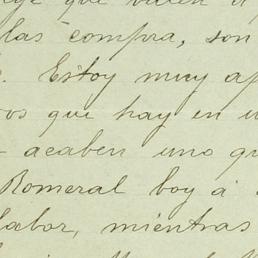 que
las compra, son
Estoy muy
que hay en
acaben uno
Romeral boy á
labor, mientras